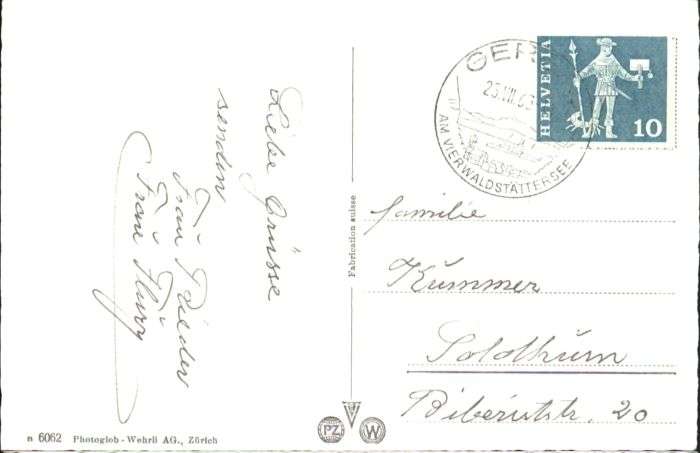 Liebe Grüsse
senden
Frau Rieder
Frau Flury
Fabrication suisse
GER
23.VII.63
AM VIERWALDSTÄTTERSEE
HELVETIA
10
Familie
Kummer
Solothurn
Biberiststr. 20
n 6062 Photoglob-Wehrli AG., Zürich
PZ W